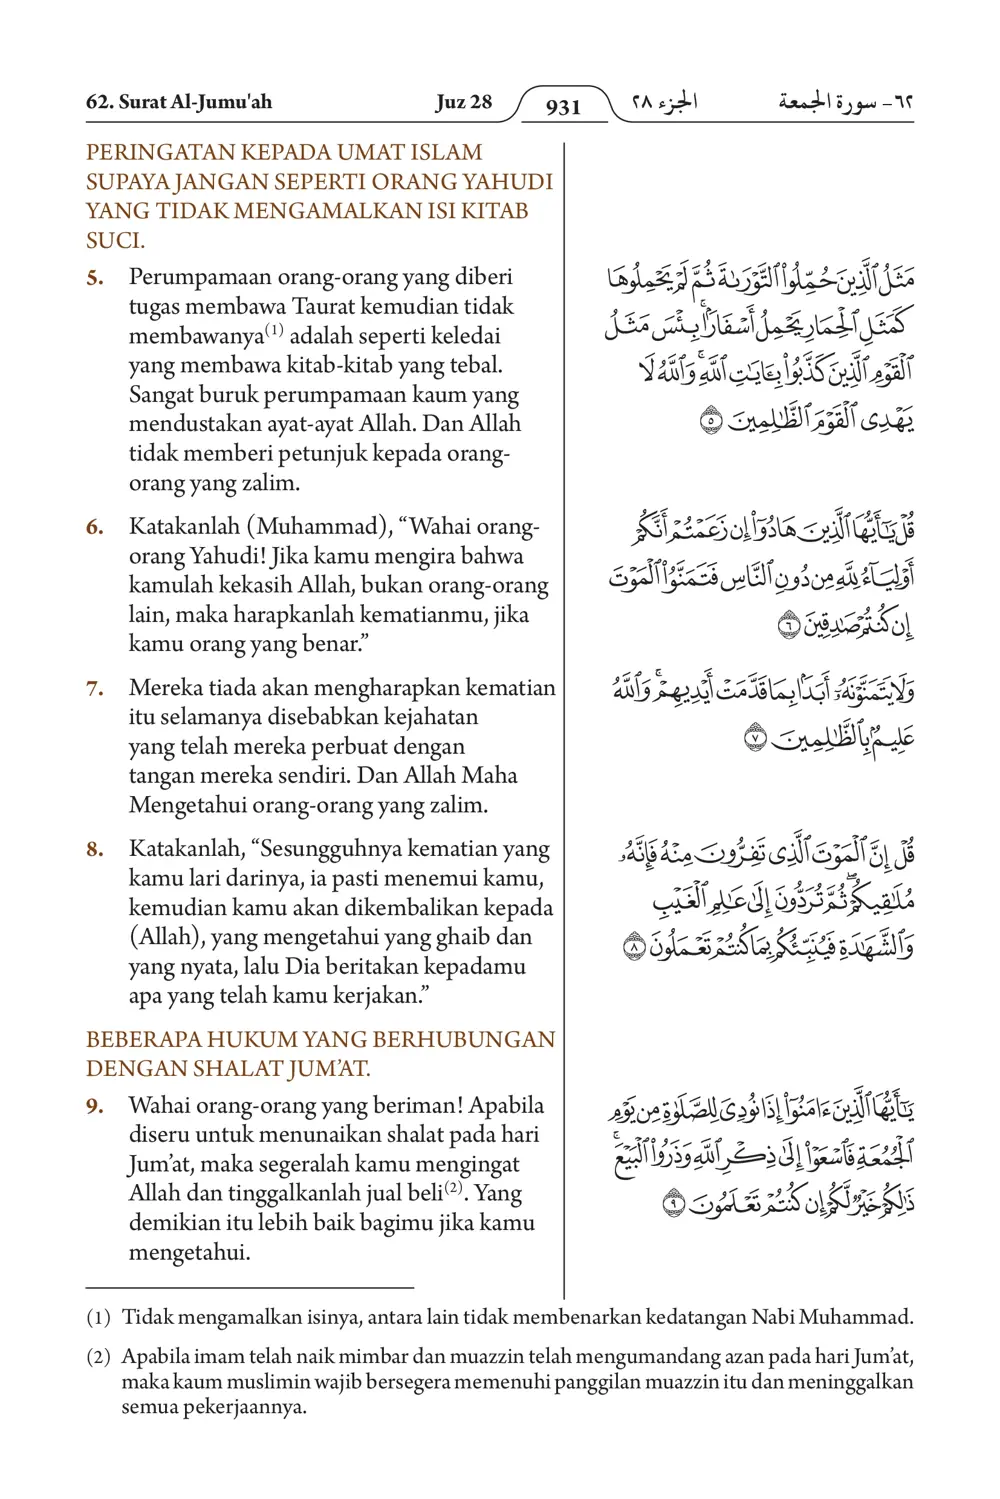 62. Surat Al-Jumu'ah Juz 28 931 الجزء ٢٨ ٦٢- سورة الجمعة
PERINGATAN KEPADA UMAT ISLAM
SUPAYA JANGAN SEPERTI ORANG YAHUDI
YANG TIDAK MENGAMALKAN ISI KITAB
SUCI.
5. Perumpamaan orang-orang yang diberi
tugas membawa Taurat kemudian tidak
membawanya(1) adalah seperti keledai
yang membawa kitab-kitab yang tebal.
Sangat buruk perumpamaan kaum yang
mendustakan ayat-ayat Allah. Dan Allah
tidak memberi petunjuk kepada orang-
orang yang zalim.
مَثَلُ ٱلَّذِينَ حُمِّلُوا۟ ٱلتَّوْرَىٰةَ ثُمَّ لَمْ يَحْمِلُوهَا
كَمَثَلِ ٱلْحِمَارِ يَحْمِلُ أَسْفَارًۢا ۚ بِئْسَ مَثَلُ
ٱلْقَوْمِ ٱلَّذِينَ كَذَّبُوا۟ بِـَٔايَـٰتِ ٱللَّهِ ۚ وَٱللَّهُ لَا
يَهْدِى ٱلْقَوْمَ ٱلظَّـٰلِمِينَ ٥
6. Katakanlah (Muhammad), “Wahai orang-
orang Yahudi! Jika kamu mengira bahwa
kamulah kekasih Allah, bukan orang-orang
lain, maka harapkanlah kematianmu, jika
kamu orang yang benar.”
قُلْ يَـٰٓأَيُّهَا ٱلَّذِينَ هَادُوٓا۟ إِن زَعَمْتُمْ أَنَّكُمْ
أَوْلِيَآءُ لِلَّهِ مِن دُونِ ٱلنَّاسِ فَتَمَنَّوُا۟ ٱلْمَوْتَ
إِن كُنتُمْ صَـٰدِقِينَ ٦
7. Mereka tiada akan mengharapkan kematian
itu selamanya disebabkan kejahatan
yang telah mereka perbuat dengan
tangan mereka sendiri. Dan Allah Maha
Mengetahui orang-orang yang zalim.
وَلَا يَتَمَنَّوْنَهُۥٓ أَبَدًۢا بِمَا قَدَّمَتْ أَيْدِيهِمْ ۚ وَٱللَّهُ
عَلِيمٌۢ بِٱلظَّـٰلِمِينَ ٧
8. Katakanlah, “Sesungguhnya kematian yang
kamu lari darinya, ia pasti menemui kamu,
kemudian kamu akan dikembalikan kepada
(Allah), yang mengetahui yang ghaib dan
yang nyata, lalu Dia beritakan kepadamu
apa yang telah kamu kerjakan.”
قُلْ إِنَّ ٱلْمَوْتَ ٱلَّذِى تَفِرُّونَ مِنْهُ فَإِنَّهُۥ
مُلَـٰقِيكُمْ ۖ ثُمَّ تُرَدُّونَ إِلَىٰ عَـٰلِمِ ٱلْغَيْبِ
وَٱلشَّهَـٰدَةِ فَيُنَبِّئُكُم بِمَا كُنتُمْ تَعْمَلُونَ ٨
BEBERAPA HUKUM YANG BERHUBUNGAN
DENGAN SHALAT JUM’AT.
9. Wahai orang-orang yang beriman! Apabila
diseru untuk menunaikan shalat pada hari
Jum’at, maka segeralah kamu mengingat
Allah dan tinggalkanlah jual beli(2). Yang
demikian itu lebih baik bagimu jika kamu
mengetahui.
يَـٰٓأَيُّهَا ٱلَّذِينَ ءَامَنُوٓا۟ إِذَا نُودِىَ لِلصَّلَوٰةِ مِن يَوْمِ
ٱلْجُمُعَةِ فَٱسْعَوْا۟ إِلَىٰ ذِكْرِ ٱللَّهِ وَذَرُوا۟ ٱلْبَيْعَ ۚ
ذَٰلِكُمْ خَيْرٌ لَّكُمْ إِن كُنتُمْ تَعْلَمُونَ ٩
(1) Tidak mengamalkan isinya, antara lain tidak membenarkan kedatangan Nabi Muhammad.
(2) Apabila imam telah naik mimbar dan muazzin telah mengumandang azan pada hari Jum’at,
maka kaum muslimin wajib bersegera memenuhi panggilan muazzin itu dan meninggalkan
semua pekerjaannya.